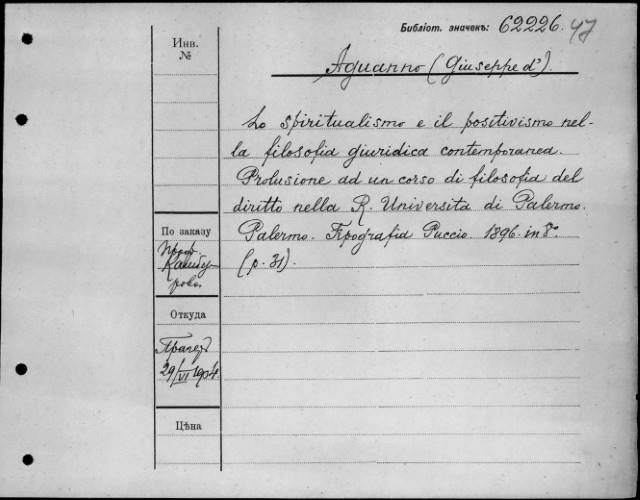 Библіот. значекъ: 62226. 47
Инв.
№
Aguanno (Giuseppe d').
Lo spiritualismo e il positivismo nel-
la filosofia giuridica contemporanea.
Prolusione ad un corso di filosofia del
diritto nella R. Universita di Palermo.
Palermo. Tipografia Puccio. 1896. in 8°
(p. 31).
По заказу
проф.
Камбу-
рова
Откуда
29/VI 1904
Цѣна